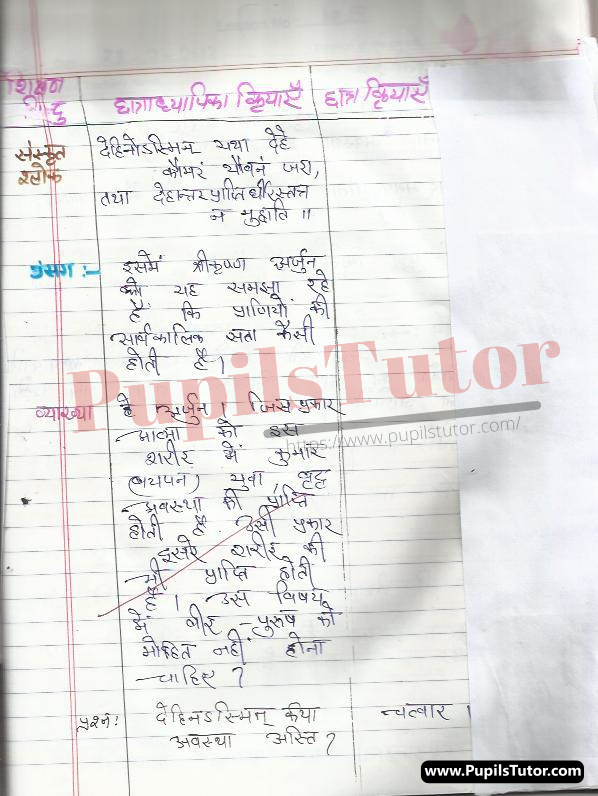 शिक्षण छात्राध्यापिका क्रियाएँ छात्र क्रियाएँ
संस्कृत श्लोक
देहिनोऽस्मिन् यथा देहे
कौमरं यौवनं जरा,
तथा देहान्तरप्राप्तिर्धीरस्तत्र
न मुहाति ॥
प्रंसग :-
इसेमं श्रीकृष्ण अर्जुन
को यह समझा रहे
हैं कि प्राणियों की
सार्वकालिक सता कैसी
होती है।
व्याख्या
हे अर्जुन । जिस प्रकार
आत्मा को इस
शरीर में कुमार
(बचपन) युवा, वृद्ध
अवस्था की प्राप्ति
होती है उसी प्रकार
दुसरे शरीर की
भी प्राप्ति होती
है। उस विषय
में धीर -पुरुष को
मोहित नहीं होना
चाहिए ?
प्रश्न: देहिनऽस्मिन् कया चत्वार ।
अवस्था अस्ति ?
PupilsTutor
https://www.pupilstutor.com/
www.PupilsTutor.com